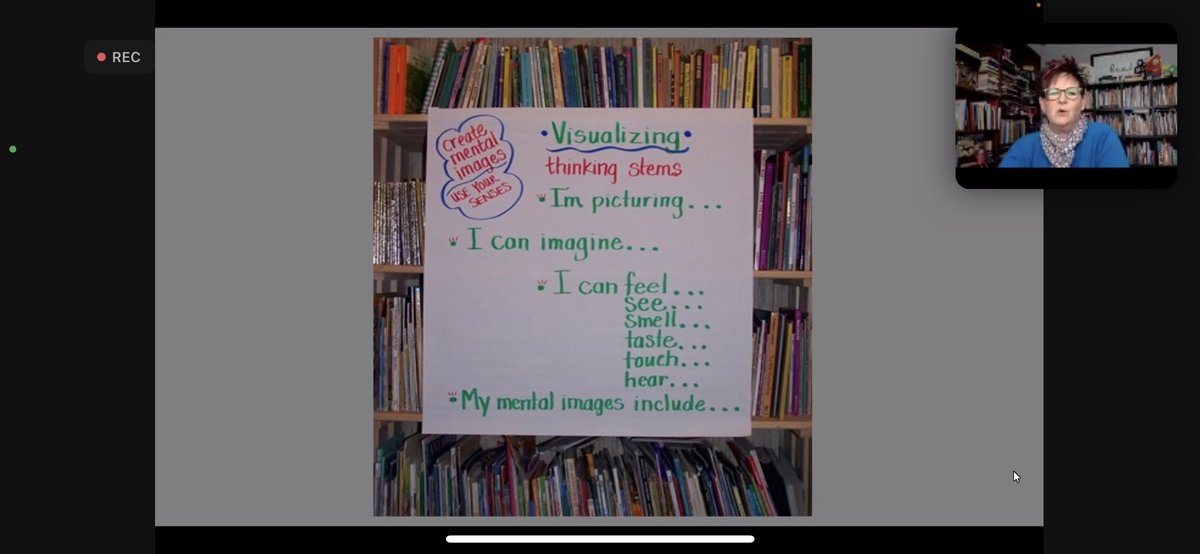 REC
Create
mental
images
USE YOUR
SENSES
• Visualizing •
thinking stems
I'm picturing...
I can imagine...
I can feel...
see...
smell...
taste...
touch...
hear...
My mental images include...
Read